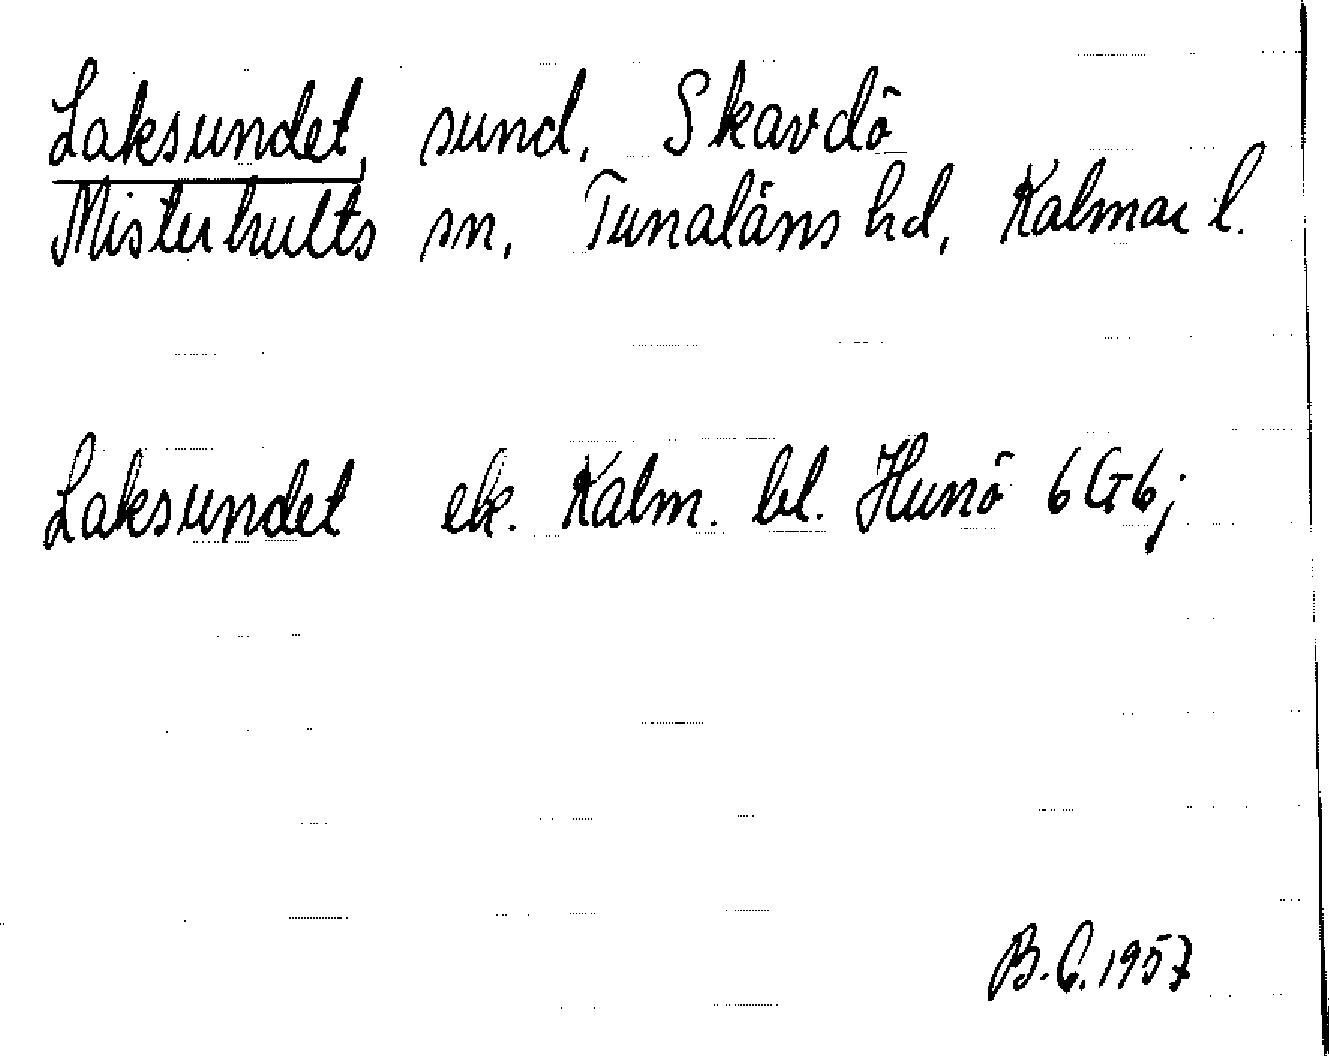 Laksundet, sund, Skavdö
Misterhults sn, Tunaläns hd, Kalmar l.
Laksundet ek. Kalm. bl. Hunö 6G6j
B.G. 1957